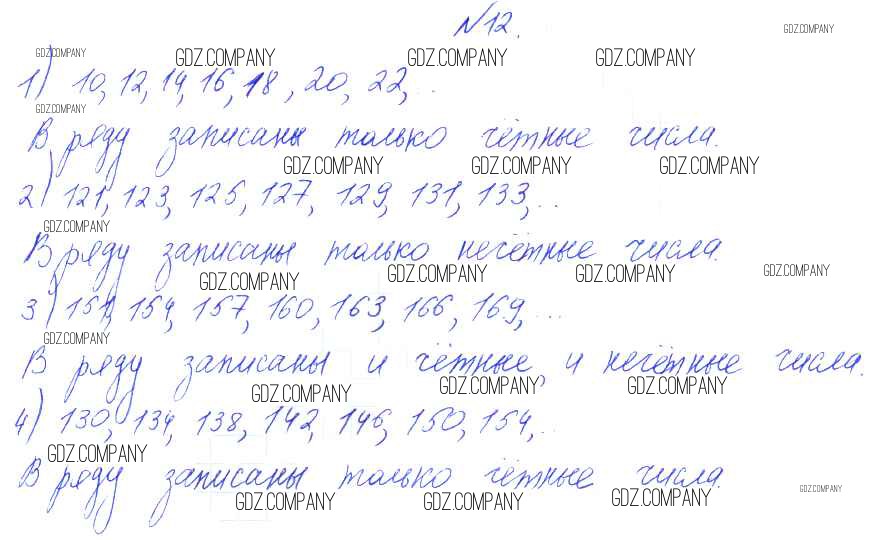 №12.
GDZ.COMPANY
GDZ.COMPANY GDZ.COMPANY GDZ.COMPANY GDZ.COMPANY
1) 10, 12, 14, 16, 18, 20, 22, ..
GDZ.COMPANY
В ряду записаны только чётные числа.
GDZ.COMPANY GDZ.COMPANY GDZ.COMPANY
2) 121, 123, 125, 127, 129, 131, 133, ..
GDZ.COMPANY
В ряду записаны только нечётные числа.
GDZ.COMPANY GDZ.COMPANY GDZ.COMPANY GDZ.COMPANY
3) 151, 154, 157, 160, 163, 166, 169, ...
GDZ.COMPANY
В ряду записаны и чётные, и нечётные числа.
GDZ.COMPANY GDZ.COMPANY GDZ.COMPANY
4) 130, 134, 138, 142, 146, 150, 154, ..
GDZ.COMPANY
В ряду записаны только чётные числа.
GDZ.COMPANY GDZ.COMPANY GDZ.COMPANY GDZ.COMPANY